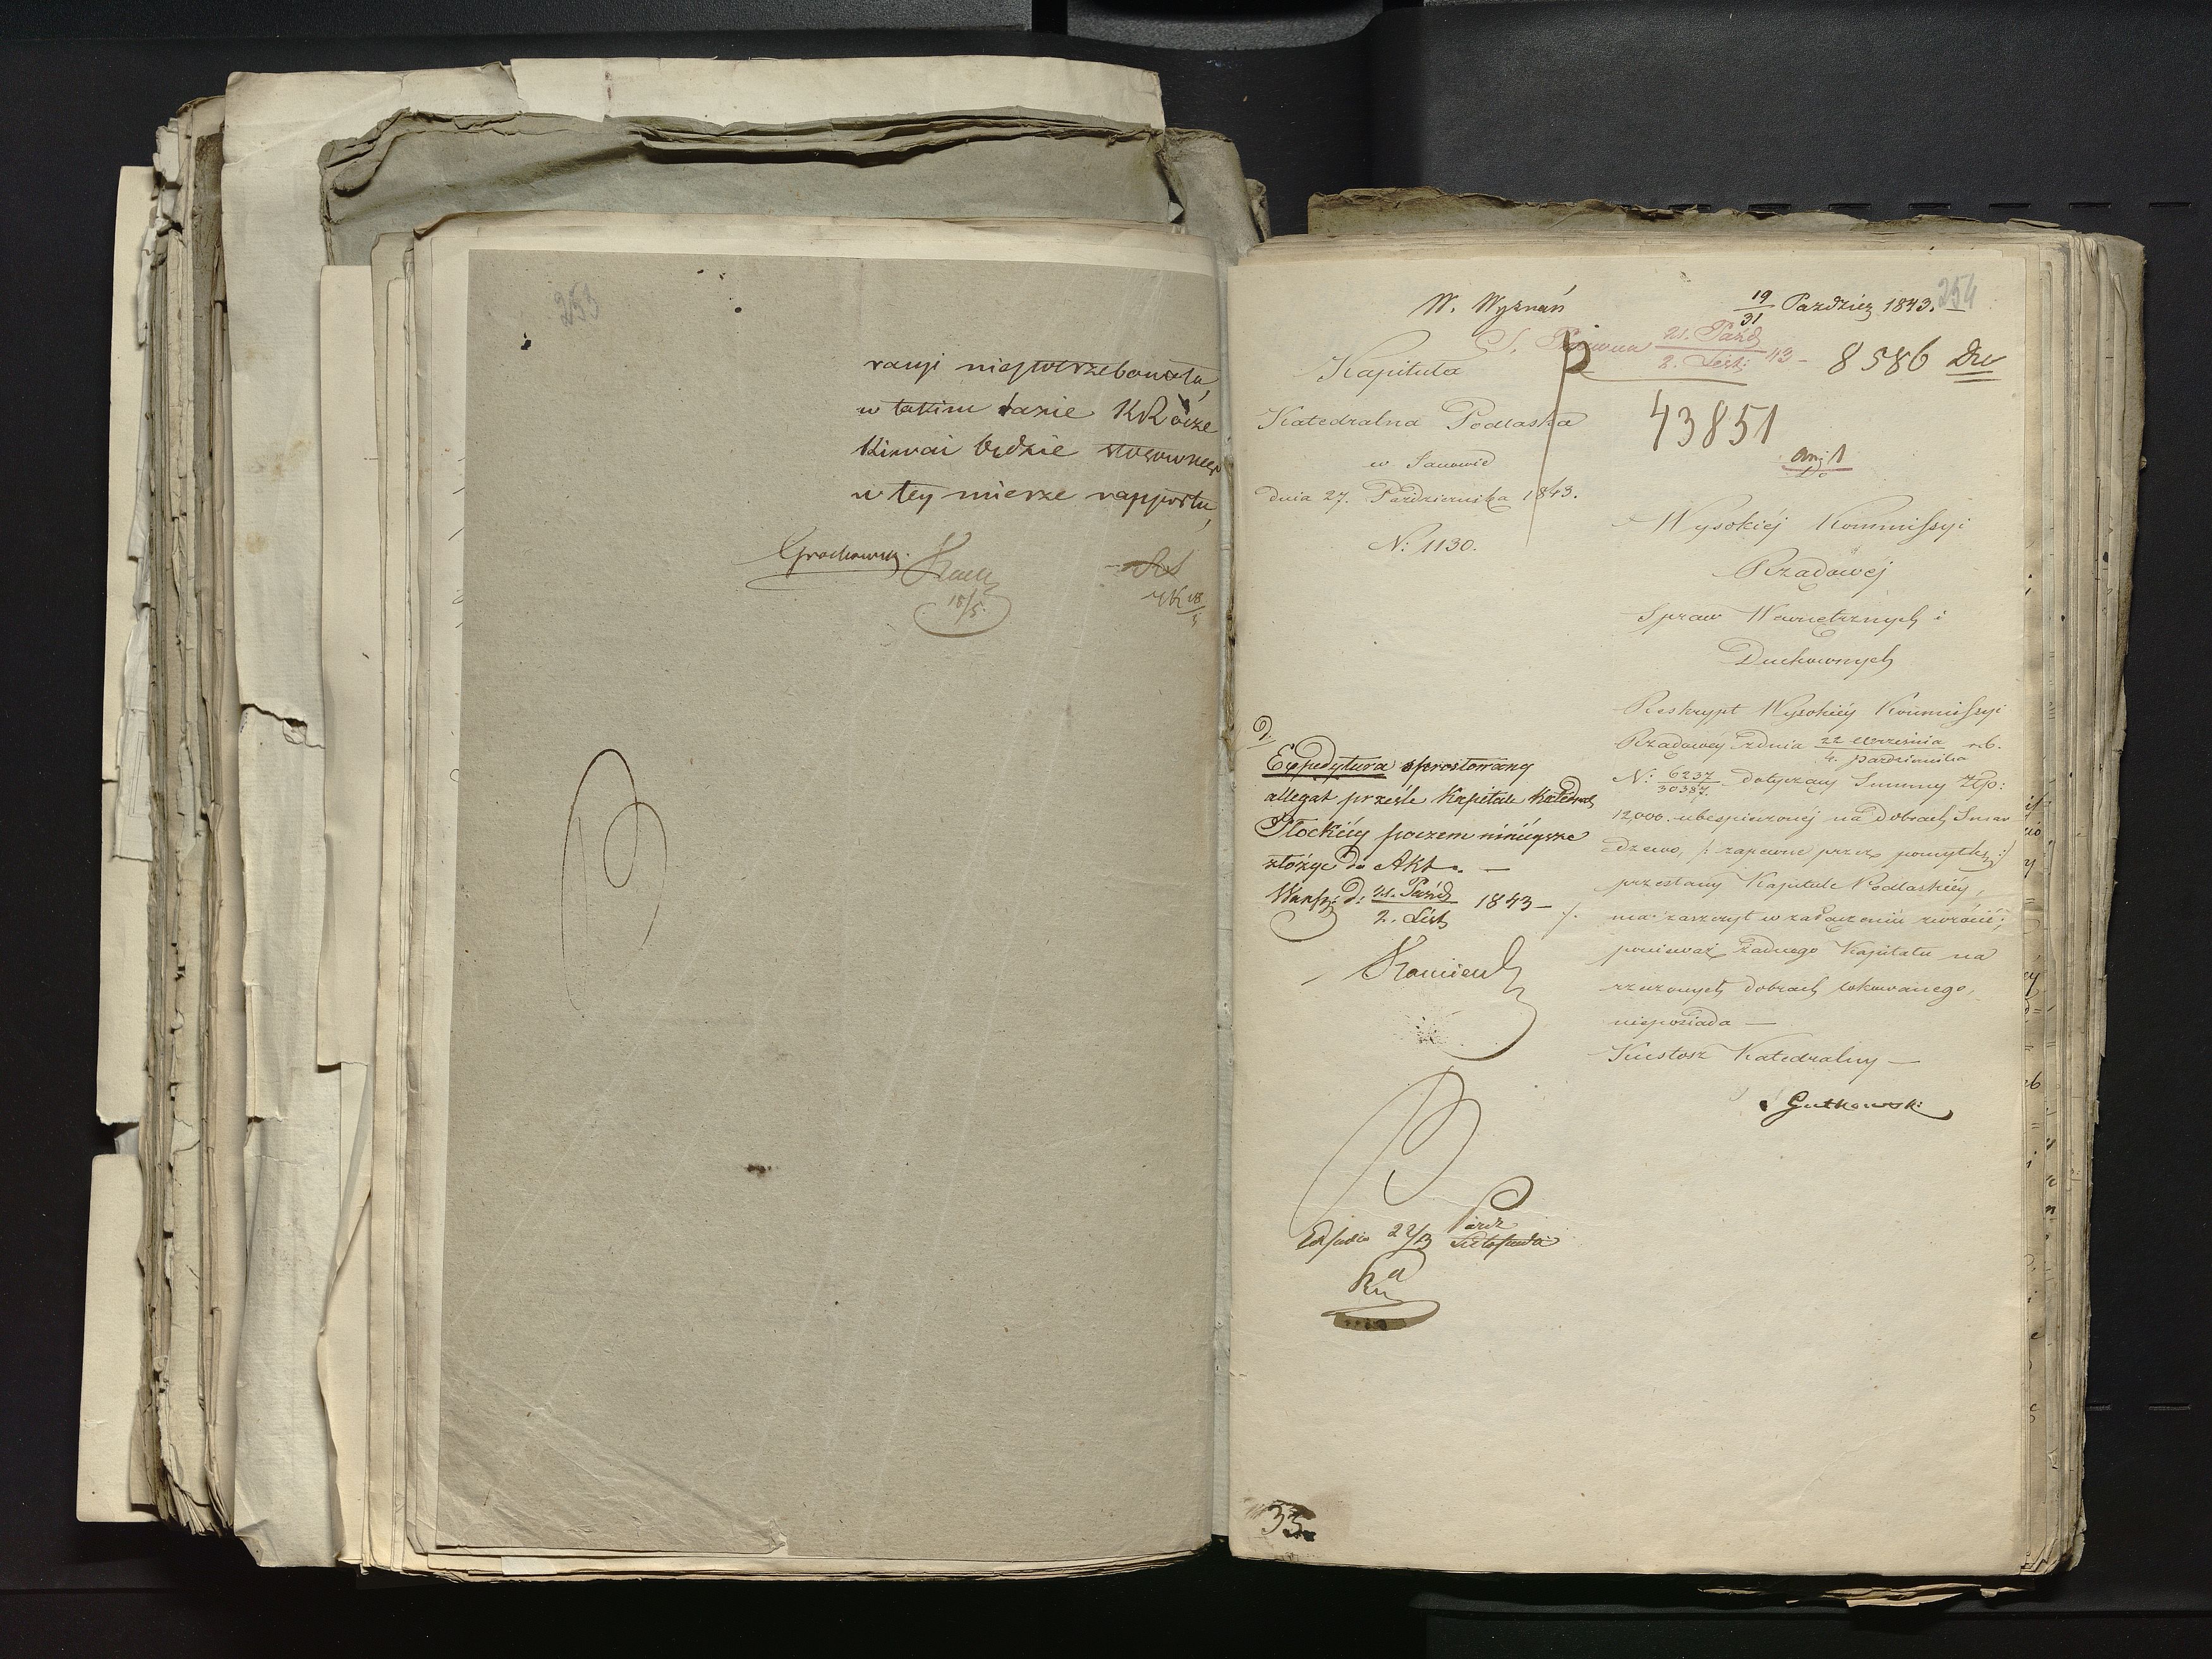 253
w takim razie KR
będzie
w tey mierze rapportu,
Grochowski
18/5.
18
W. Wyznań
19/31 Paździer 1843.
254
21. Paźd
2. List. 43 –
8586
Kapituła
43851
Katedralna Podlaska
w Janowie
dnia 27. Października 1843.
N: 1130.
Do
Wysokiéj Kommissyi
Rządowéj
Spraw Wewnętrznych i
Duchownych
Reskrypt Wysokiéy Kommissyi
Rządowéy zdnia 22 Września / 4. Października r.b.
N: 6237/30387. dotyczący Summy Złp:
12,000. ubespieczonéj na dobrach
/: zapewne przez pomyłkę :/
przesłany Kapitule Podlaskiéy,
ma zaszczyt w załączeniu zwrócić;
ponieważ żadnego Kapitału na
rzeczonych dobrach lokowanego,
nieposiada —
Kustosz Katedralny —
Gutkowski
D.
Expedytura sprostowany
allegat prześle Kapitule Katedral
Płockiéy poczem ninieysze
złożyć do Akt. —
Warsz: d: 21. Paźd / 2. List 1843 —
22/3 Paźdz
Listopada
33.